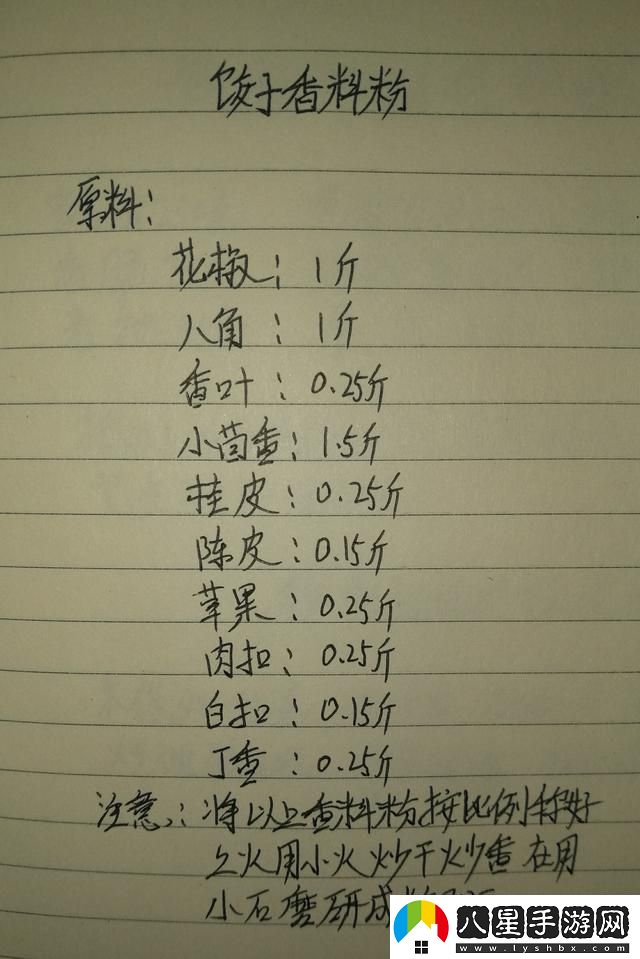 饺子香料粉
原料：
花椒：1斤
八角：1斤
香叶：0.25斤
小茴香：1.5斤
桂皮：0.25斤
陈皮：0.15斤
草果：0.25斤
肉扣：0.25斤
白扣：0.15斤
丁香：0.25斤
注意：将以上香料粉按比例称好
上火用小火炒干炒香在用
小石磨研成
八星手游网
www.lyshbx.com